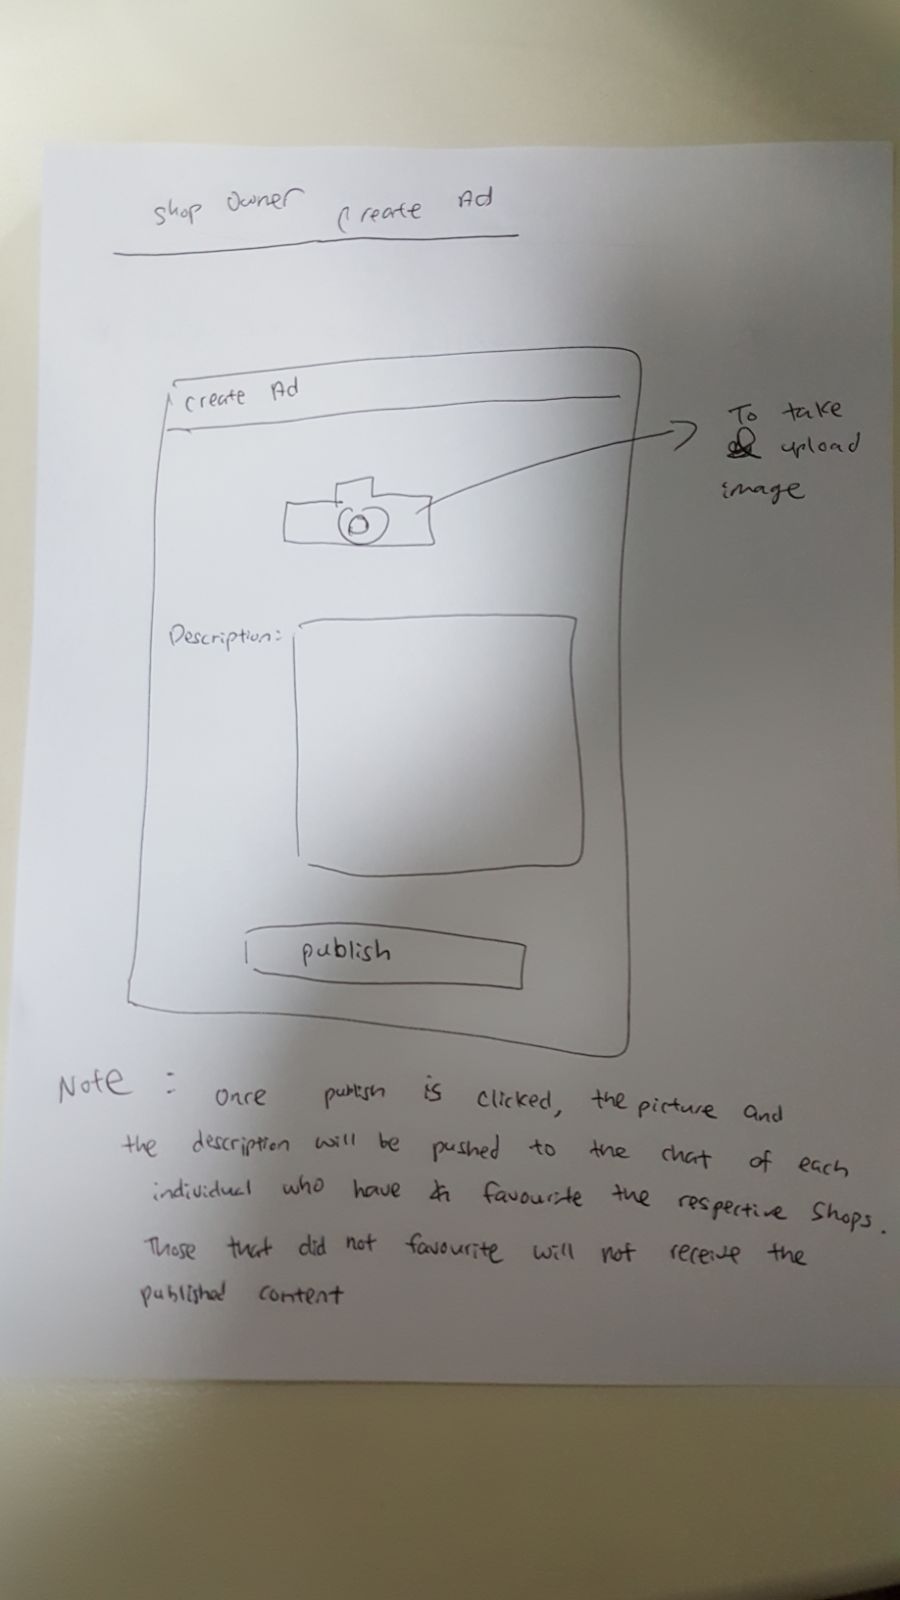 Shop Owner Create Ad
Create Ad
To take
& upload
image
Description:
publish
Note : Once publish is clicked, the picture and
the description will be pushed to the chat of each
individual who have favourite the respective shops.
Those that did not favourite will not receive the
published content